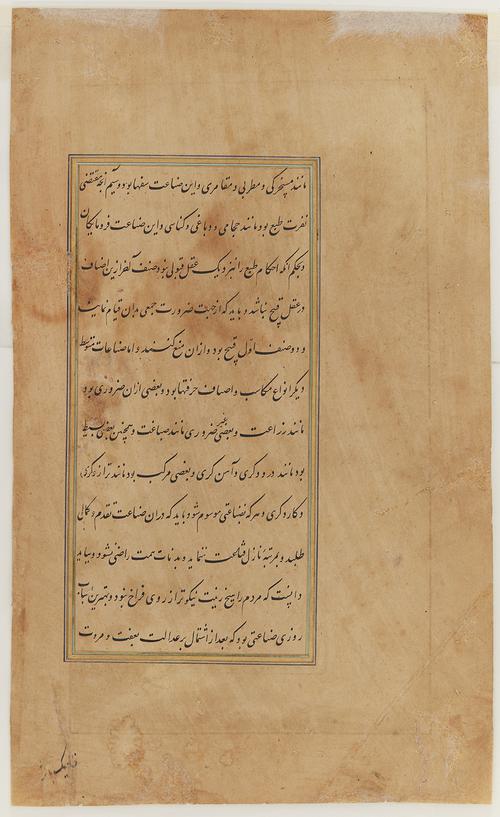 مانند مسخرگی و مطربی و مقامری و این صناعت سفها بود و سیم آنچه مقتضی
نفرت طبع بود مانند حجامی و دباغی و کناسی و این صناعت فرومایگان
و بحکم آنکه احکام طبع را نزدیک عقل قبولی نبود صنف آخر ازین اصناف
در عقل قبیح نباشد و باید که از جهت ضرورت جمعی بدان قیام نمایند
و دو صنف اول قبیح بود و ازان منع کنند و اما صناعات متوسط
دیگر انواع مکاسب و اصناف حرفتها بود و بعضی ازان ضروری بود
مانند زراعت و بعضی غیر ضروری مانند صیاغت و همچنین بعضی بسیط
بود مانند درودگری و آهن گری و بعضی مرکب بود مانند ترازوگری
و کاردگری و هر که بصناعتی موسوم شود باید که دران صناعت تقدم و کمال
طلبد و بمرتبه نازل قناعت ننماید و بدنائت همت راضی نشود و بباید
دانست که مردم را هیچ زینت نیکوتر از روی فراخ نبود و بهترین اسباب
روزی صناعتی بود که بعد از اشتمال بر عدالت بعفت و مروت
نزدیک